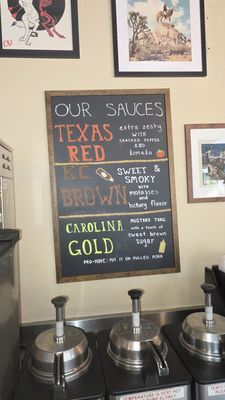 OUR SAUCES
TEXAS RED
extra zesty
WITH
CRACKED PEPPER
AND
TOMATO
KC BROWN
SWEET &
SMOKY
with
molasses
and
hickory flavor
CAROLINA GOLD
MUSTARD TANG
with a touch of
sweet brown
sugar
PRO-MOVE: PUT IT ON PULLED PORK
TEMPERATURE